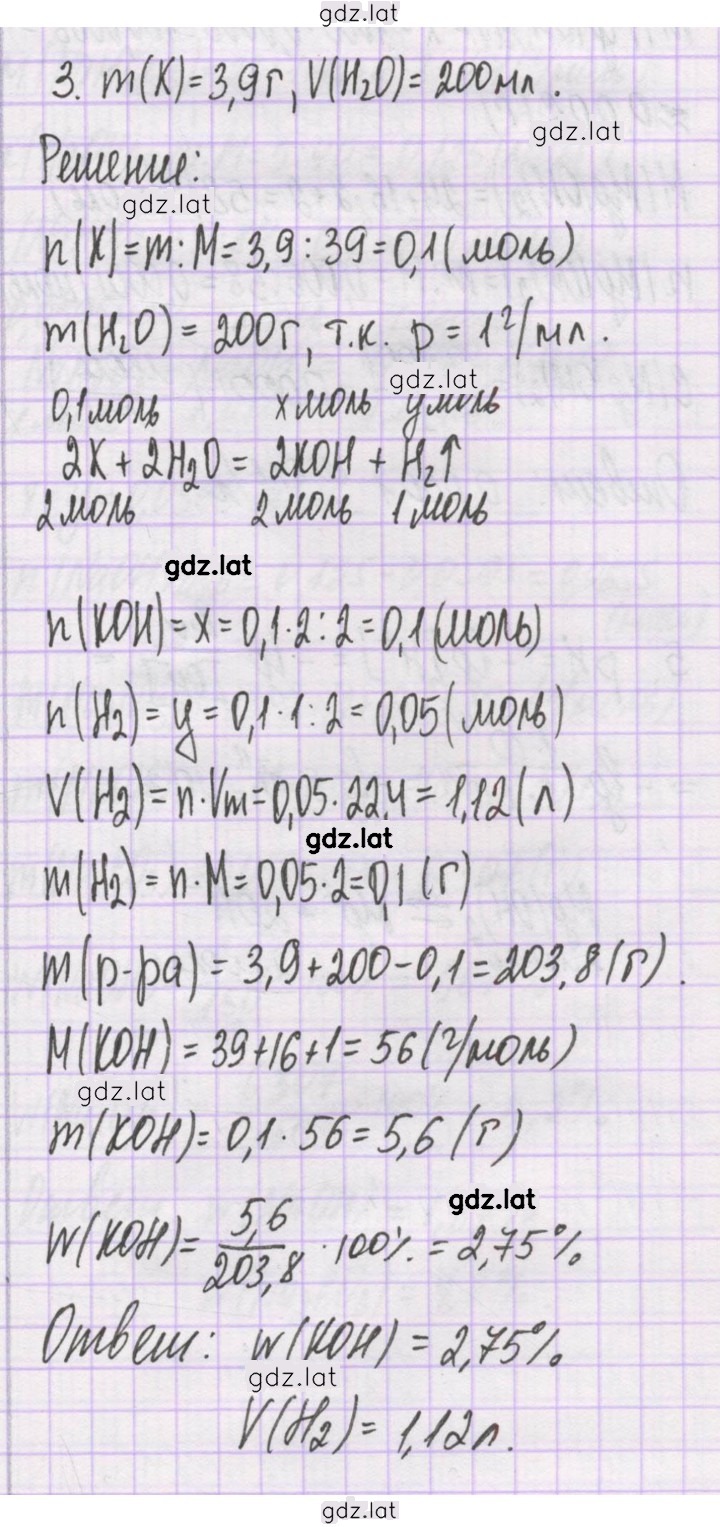 gdz.lat
3. m(K)=3,9г, V(H₂O)=200мл.
gdz.lat
Решение:
gdz.lat
n(K)=m:M=3,9:39=0,1(моль)
m(H₂O)=200г, т.к. p=1г/мл.
gdz.lat
0,1моль xмоль yмоль
2K+2H₂O=2KOH+H₂↑
2моль 2моль 1моль
gdz.lat
n(KOH)=x=0,1·2:2=0,1(моль)
n(H₂)=y=0,1·1:2=0,05(моль)
V(H₂)=n·Vm=0,05·22,4=1,12(л)
gdz.lat
m(H₂)=n·M=0,05·2=0,1(г)
m(р-ра)=3,9+200-0,1=203,8(г).
M(KOH)=39+16+1=56(г/моль)
gdz.lat
m(KOH)=0,1·56=5,6(г)
gdz.lat
W(KOH)=5,6/203,8·100%=2,75%
Ответ: w(KOH)=2,75%
gdz.lat
V(H₂)=1,12л.
gdz.lat